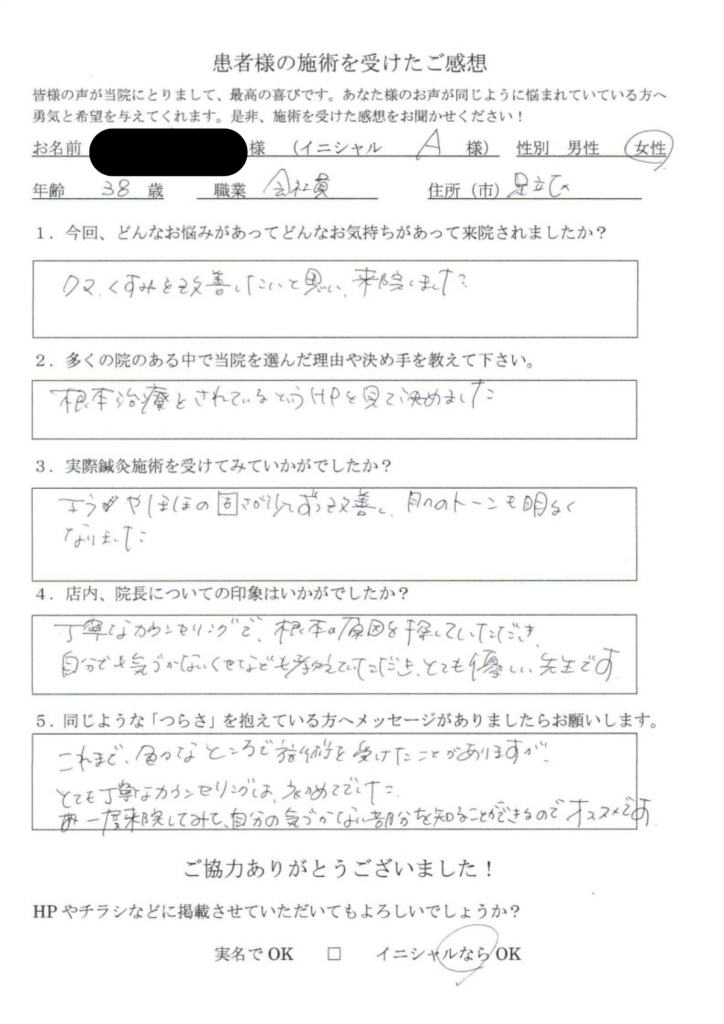 患者様の施術を受けたご感想
皆様の声が当院にとりまして、最高の喜びです。あなた様のお声が同じように悩まれていている方へ
勇気と希望を与えてくれます。是非、施術を受けた感想をお聞かせください！
お名前 様 （イニシャル A 様） 性別 男性 女性
年齢 38 歳 職業 会社員 住所（市）足立区
１．今回、どんなお悩みがあってどんなお気持ちがあって来院されましたか？
クマ、くすみを改善したいと思い、来院しました
２．多くの院のある中で当院を選んだ理由や決め手を教えて下さい。
根本治療とされているというHPを見て決めました
３．実際鍼灸施術を受けてみていかがでしたか？
やほほの固さが少しずつ改善し、肌のトーンも明るく
なりました
４．店内、院長についての印象はいかがでしたか？
丁寧なカウンセリングで、根本の原因を探していただき、
自分でも気づかないくせなども教えていただき、とても優しい先生です
５．同じような「つらさ」を抱えている方へメッセージがありましたらお願いします。
これまで、色々なところで施術を受けたことがありますが、
とても丁寧なカウンセリングは、初めてでした。
一度来院してみて、自分の気づかない部分を知ることができるのでオススメです
ご協力ありがとうございました！
HPやチラシなどに掲載させていただいてもよろしいでしょうか？
実名でOK □ イニシャルならOK